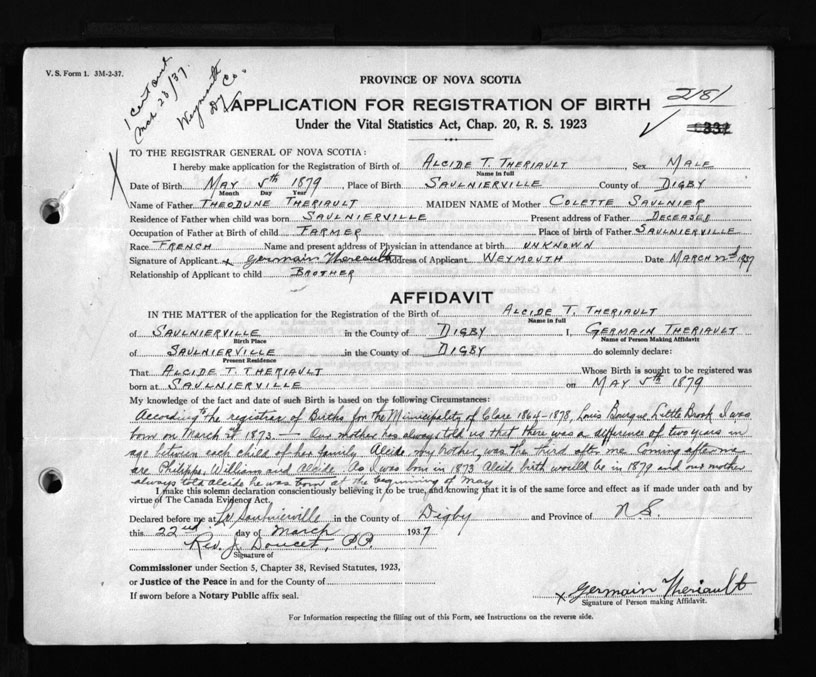 V. S. Form 1. 3M-2-37.
1 cert out
Mch 23/37.
Weymouth
Dy Co.
PROVINCE OF NOVA SCOTIA
2181
APPLICATION FOR REGISTRATION OF BIRTH
Under the Vital Statistics Act, Chap. 20, R. S. 1923
TO THE REGISTRAR GENERAL OF NOVA SCOTIA:
I hereby make application for the Registration of Birth of ALCIDE T. THERIAULT Sex MALE
Name in full
Date of Birth MAY 5th 1879, Place of Birth SAULNIERVILLE County of DIGBY
Month Day Year
Name of Father THEODUNE THERIAULT MAIDEN NAME of Mother COLETTE SAULNIER
Residence of Father when child was born SAULNIERVILLE Present address of Father DECEASED
Occupation of Father at Birth of child FARMER Place of birth of Father SAULNIERVILLE
Race FRENCH Name and present address of Physician in attendance at birth UNKNOWN
Signature of Applicant x Germain Theriault Address of Applicant WEYMOUTH Date MARCH 22nd 1937
Relationship of Applicant to child BROTHER
AFFIDAVIT
IN THE MATTER of the application for the Registration of the Birth of ALCIDE T. THERIAULT
Name in full
of SAULNIERVILLE in the County of DIGBY I, GERMAIN THERIAULT
Birth Place Name of Person Making Affidavit
of SAULNIERVILLE in the County of DIGBY do solemnly declare:
Present Residence
That ALCIDE T. THERIAULT Whose Birth is sought to be registered was
born at SAULNIERVILLE on MAY 5th 1879
My knowledge of the fact and date of such Birth is based on the following Circumstances:
According to the registrar of Births for the Municipality of Clare 1864-1878, Louis Bourque, Little Brook I was
born on March 1873. — Our mother has always told us that there was a difference of two years in
age between each child of her family. Alcide my brother was the third after me coming after me
are Philippe, William and Alcide. As I was born in 1873 Alcide birth would be in 1879 and our mother
always told Alcide he was born at the beginning of May
I make this solemn declaration conscientiously believing it to be true, and knowing that it is of the same force and effect as if made under oath and by
virtue of The Canada Evidence Act.
Declared before me at Saulnierville in the County of Digby and Province of N.S.
this 22nd day of March 1937
Rev. J. Doucet, P.P.
Signature of
Commissioner under Section 5, Chapter 38, Revised Statutes, 1923,
or Justice of the Peace in and for the County of
If sworn before a Notary Public affix seal.
x Germain Theriault
Signature of Person making Affidavit.
For Information respecting the filling out of this Form, see Instructions on the reverse side.